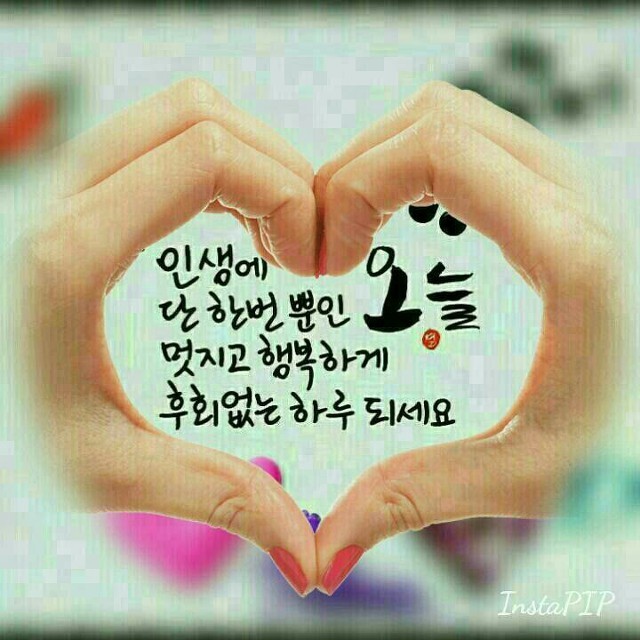 인생에
단 한번 뿐인 오늘
멋지고 행복하게
후회없는 하루 되세요
InstaPIP